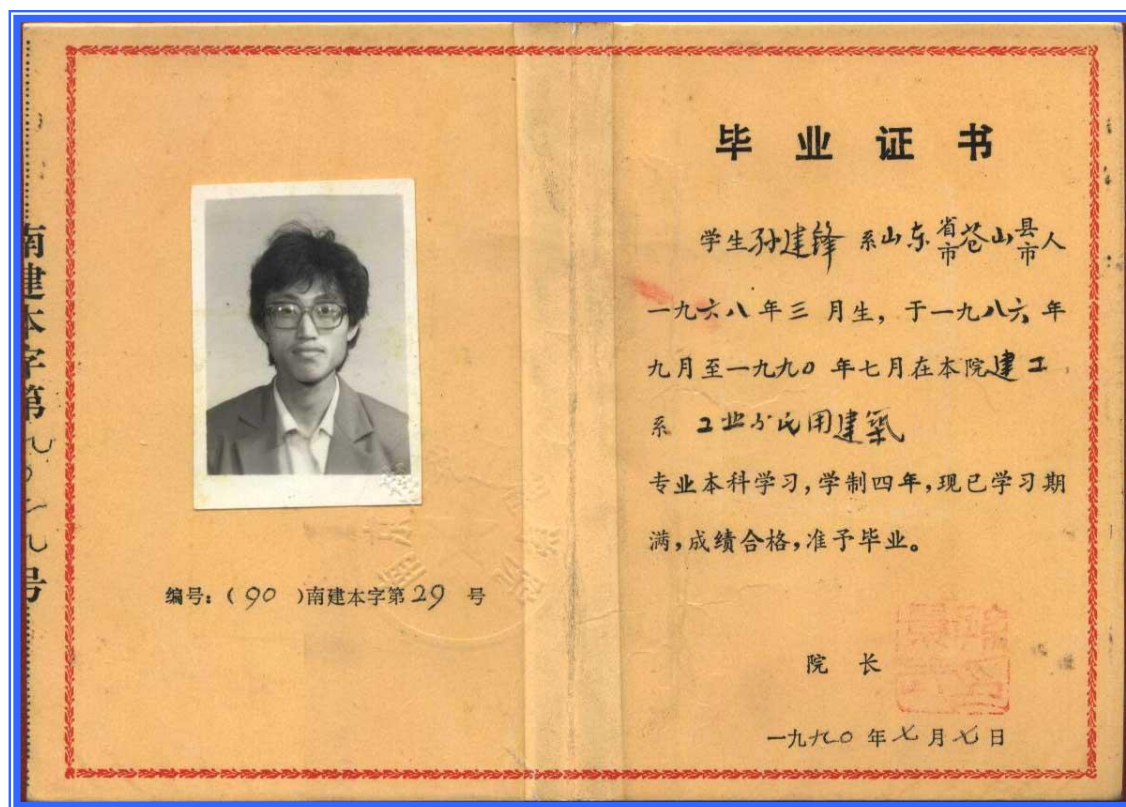 南建本字第九〇二九号
编号:(90)南建本字第29 号
毕业证书
学生孙建锋 系山东省市苍山县市人
一九六八年三 月生, 于一九八六年
九月至一九九0 年七月在本院建工
系 工业与民用建筑
专业本科学习,学制四年,现已学习期
满,成绩合格,准予毕业。
院 长
一九九0 年七月七日